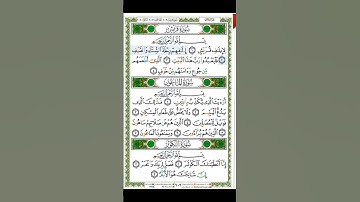 سُورَةُ قُرَيْشٍ
بِسْمِ اللَّهِ الرَّحْمَٰنِ الرَّحِيمِ
لِإِيلَافِ قُرَيْشٍ ۝١ إِيلَافِهِمْ رِحْلَةَ الشِّتَاءِ وَالصَّيْفِ
۝٢ فَلْيَعْبُدُوا رَبَّ هَٰذَا الْبَيْتِ ۝٣ الَّذِي أَطْعَمَهُم
مِّن جُوعٍ وَآمَنَهُم مِّنْ خَوْفٍ ۝٤
سُورَةُ الْمَاعُونِ
بِسْمِ اللَّهِ الرَّحْمَٰنِ الرَّحِيمِ
أَرَأَيْتَ الَّذِي يُكَذِّبُ بِالدِّينِ ۝١ فَذَٰلِكَ الَّذِي
يَدُعُّ الْيَتِيمَ ۝٢ وَلَا يَحُضُّ عَلَىٰ طَعَامِ الْمِسْكِينِ
۝٣ فَوَيْلٌ لِّلْمُصَلِّينَ ۝٤ الَّذِينَ هُمْ عَن صَلَاتِهِمْ سَاهُونَ
۝٥ الَّذِينَ هُمْ يُرَاءُونَ ۝٦ وَيَمْنَعُونَ الْمَاعُونَ ۝٧
سُورَةُ الْكَوْثَرِ
بِسْمِ اللَّهِ الرَّحْمَٰنِ الرَّحِيمِ
إِنَّا أَعْطَيْنَاكَ الْكَوْثَرَ ۝١ فَصَلِّ لِرَبِّكَ وَانْحَرْ ۝٢
إِنَّ شَانِئَكَ هُوَ الْأَبْتَرُ ۝٣